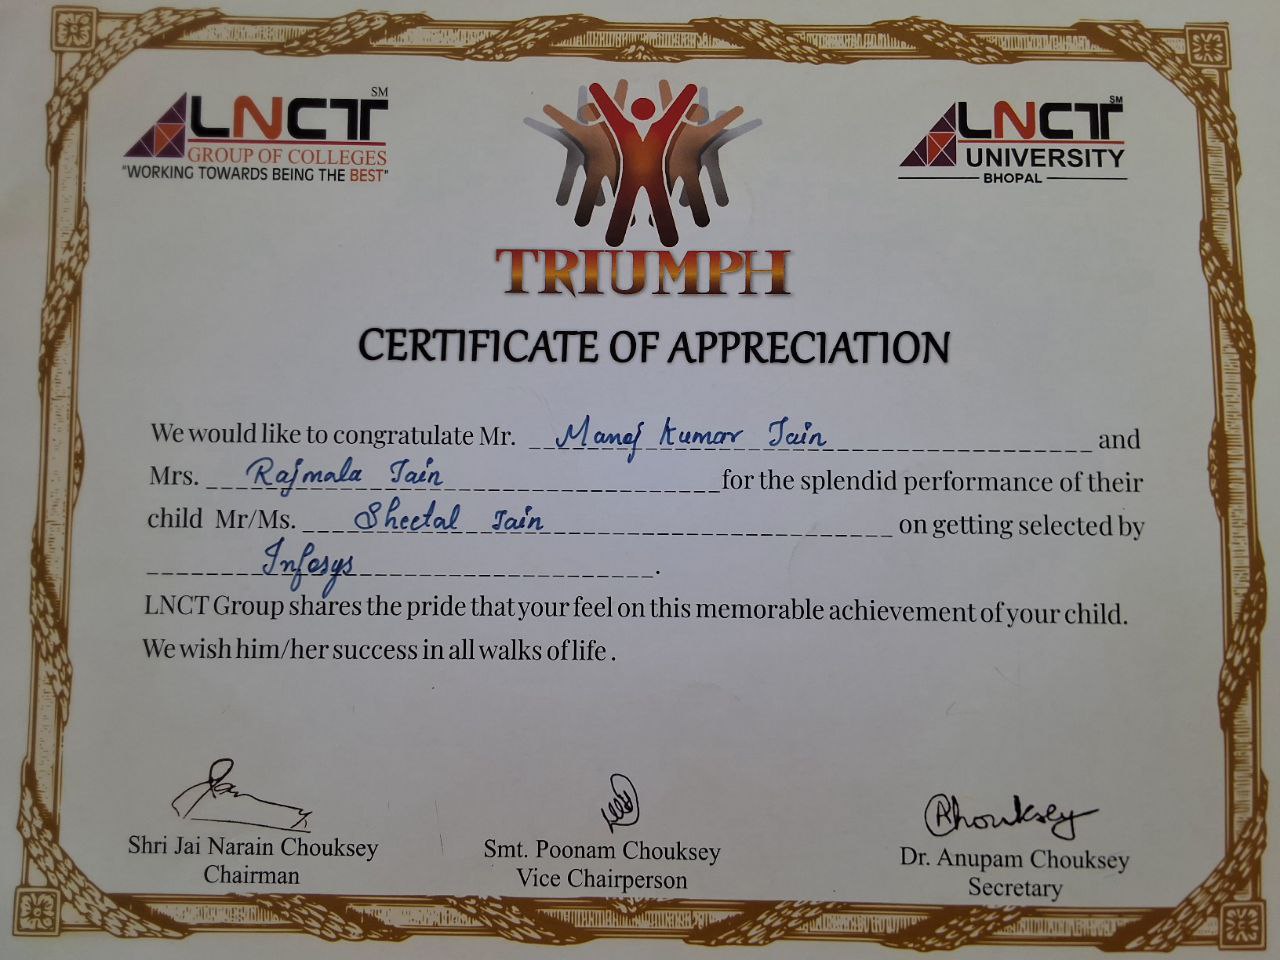 LNCT SM
GROUP OF COLLEGES
"WORKING TOWARDS BEING THE BEST"
LNCT SM
UNIVERSITY
BHOPAL
TRIUMPH
CERTIFICATE OF APPRECIATION
We would like to congratulate Mr. Manoj Kumar Jain and
Mrs. Rajmala Jain for the splendid performance of their
child Mr/Ms. Sheetal Jain on getting selected by
Infosys.
LNCT Group shares the pride that your feel on this memorable achievement of your child.
We wish him/her success in all walks of life.
Shri Jai Narain Chouksey
Chairman
Smt. Poonam Chouksey
Vice Chairperson
AChouksey
Dr. Anupam Chouksey
Secretary